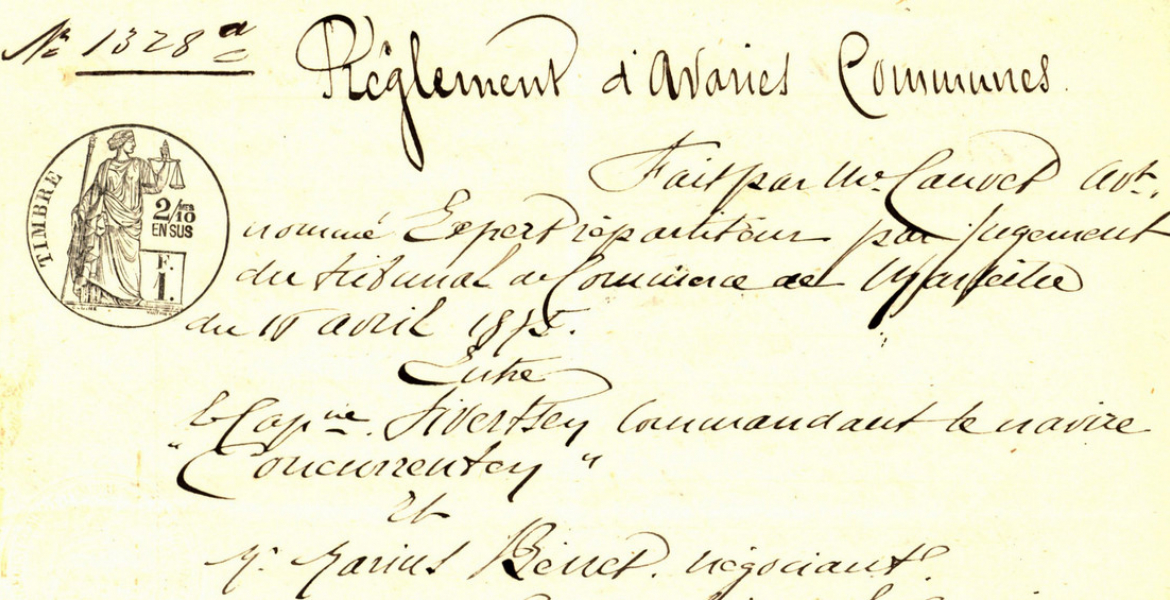 No 1328 a
Réglement d'Avaries Communes
TIMBRE
2/10
EN SUS
F.
1.
Fait par Me Cauvet avt.
nommé Expert répartiteur par jugement
du tribunal de Commerce de Marseille
du avril 1875.
Entre
le Capne. Sivertsen Commandant le navire
"Concurrenten"
et
Mr. Marius négociant.